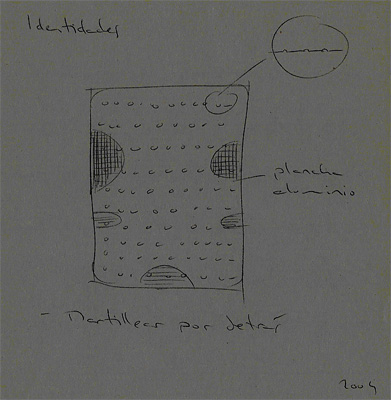 Identidades
plancha
aluminio
- Martillear por detrás
2004